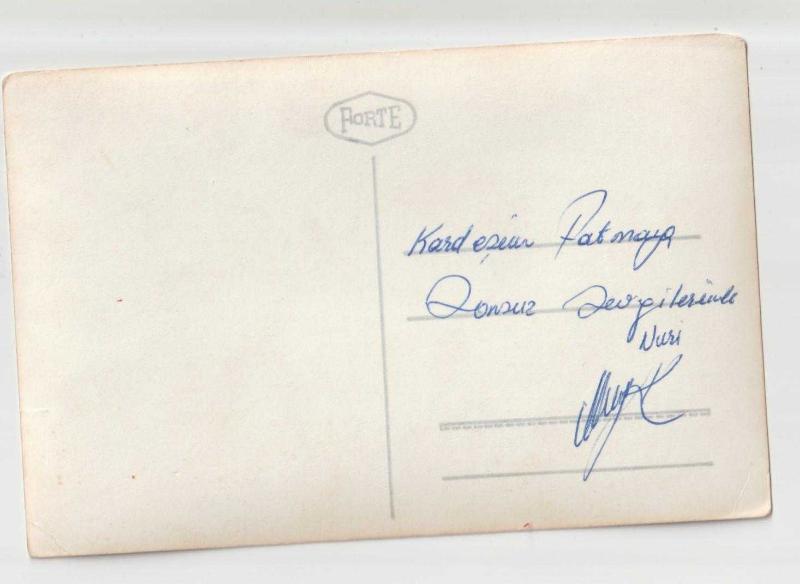 FORTE
Kardeşim Fatmaya
Sonsuz Sevgilerimle
Nuri